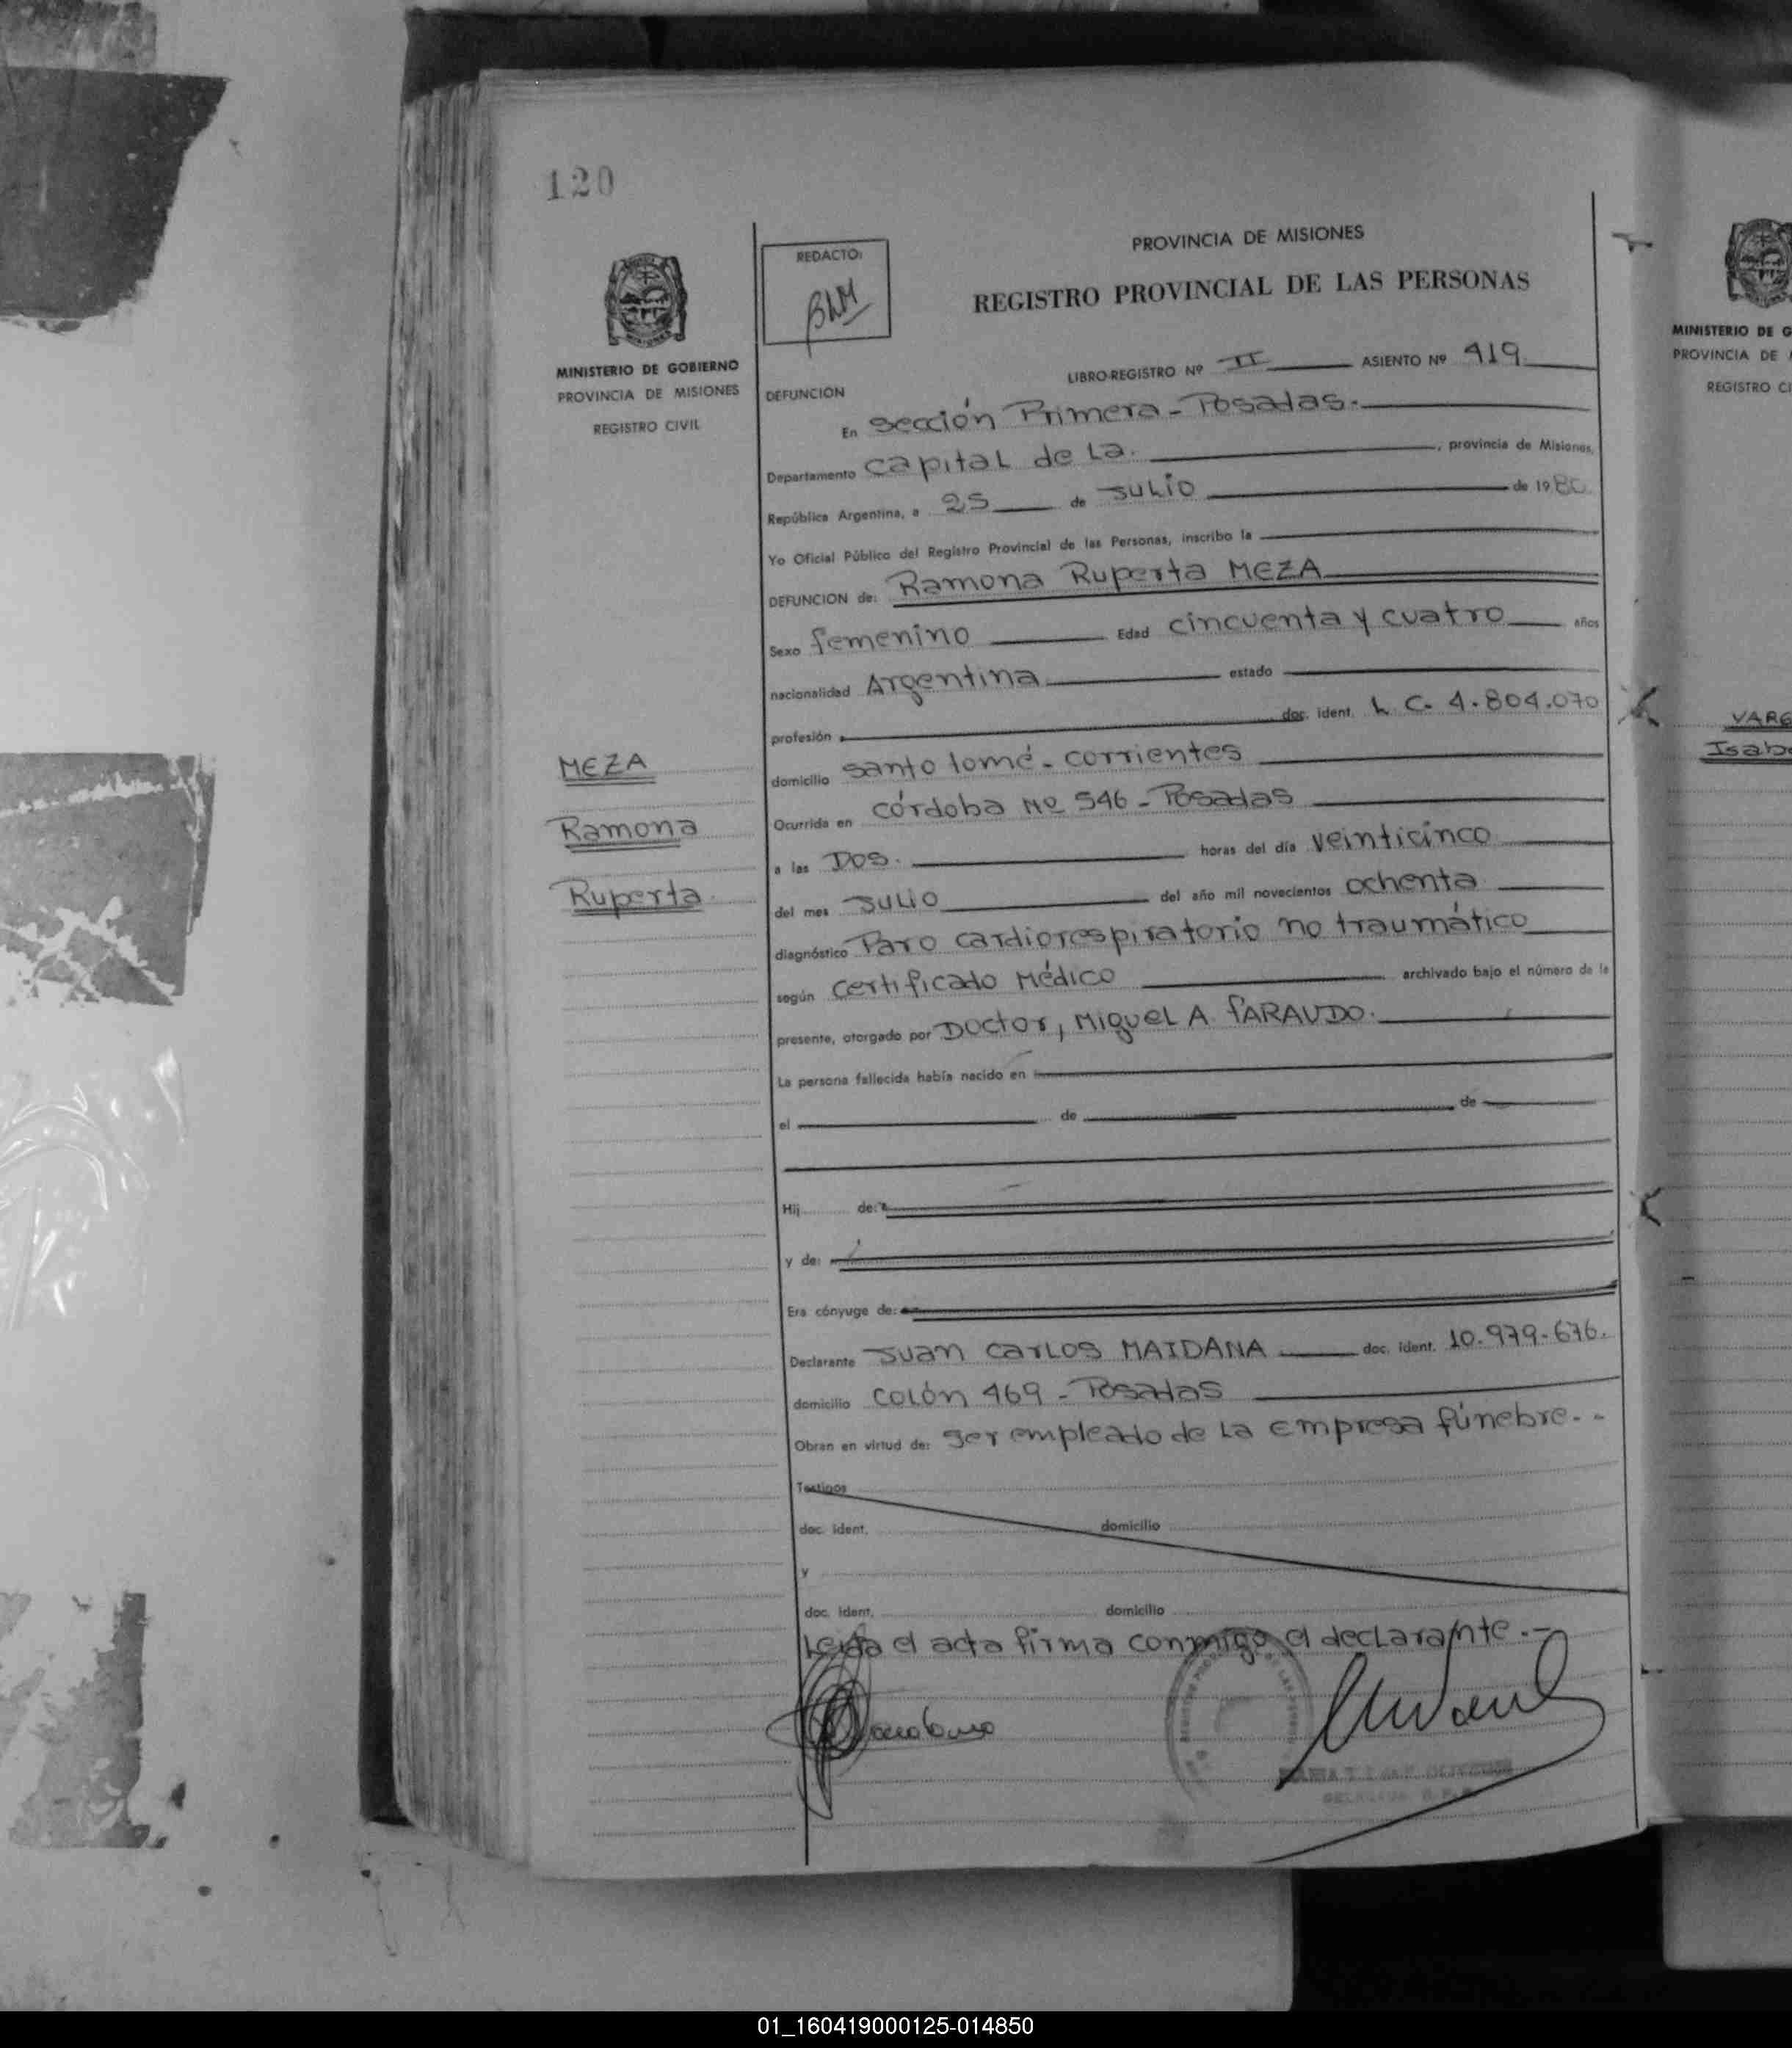 120
MINISTERIO DE GOBIERNO
PROVINCIA DE MISIONES
REGISTRO CIVIL
MEZA
Ramona
Ruperta
REDACTO:
PROVINCIA DE MISIONES
REGISTRO PROVINCIAL DE LAS PERSONAS
LIBRO-REGISTRO Nº II ASIENTO Nº 419
DEFUNCION
En Sección Primera - Posadas.
Departamento Capital de La. , provincia de Misiones,
República Argentina, a 25 de Julio de 1980
Yo Oficial Público del Registro Provincial de las Personas, inscribo la
DEFUNCION de: Ramona Ruperta MEZA
Sexo femenino Edad cincuenta y cuatro años
nacionalidad Argentina estado
profesión doc. ident. L. C. 4.804.070
domicilio Santo tomé - corrientes
Ocurrida en Córdoba Nº 546 - Posadas
a las Dos. horas del día veinticinco
del mes Julio del año mil novecientos ochenta
diagnóstico Paro cardiorespiratorio no traumático
según Certificado Médico archivado bajo el número de la
presente, otorgado por Doctor, Miguel A. FARAUDO.
La persona fallecida había nacido en
el de de
Hij de:
y de:
Era cónyuge de:
Declarante Juan Carlos MAIDANA doc. ident. 10.979.676.
domicilio Colón 469 - Posadas
Obran en virtud de: Ser empleado de la empresa fúnebre.-
Testigos
doc. ident. domicilio
y
doc. ident. domicilio
Leída el acta firma conmigo el declarante.-
MINISTERIO DE G
PROVINCIA DE
REGISTRO CI
VARG
Isabe
01_160419000125-014850